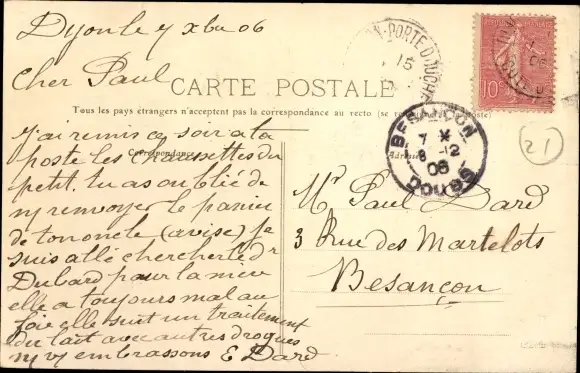 Dyon le 7 xbre 06
Cher Paul
CARTE POSTALE
Tous les pays étrangers n'acceptent pas la correspondance au recto (se à la poste)
Correspondance
J'ai remis ce soir a ta
poste les chaussettes du
petit. tu as oublié de
ny renvoyer le panier
de ton oncle (avise) Je
suis allé chercher le dr
Dubard pour la mieu
elle a toujours mal au
foie elle suit un traitement
du lait avec autres drogues
ny vs embrassons E Dard
Mr Paul Dard
3 Rue des Martelots
Besançon
PORTE D'OUCHE
15
10c
BESANÇON
7
8 -12
06
DOUBS
21